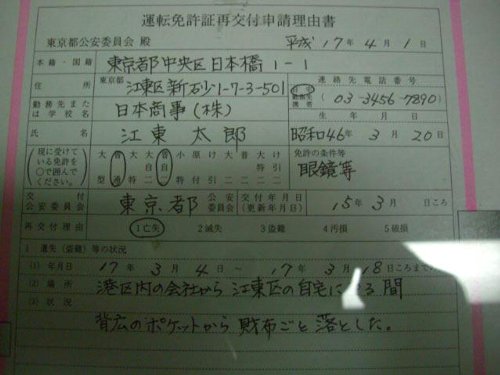 運転免許証再交付申請理由書
東京都公安委員会 殿 平成 17 年 4 月 1 日
本籍・国籍 東京都中央区日本橋1-1
住所 東京都 江東区新砂1-7-3-501 連絡先電話番号
勤務先または学校名 日本商事(株) 03-3456-7890
生年月日
氏名 江東太郎 昭和46年 3月 20日
(現に受けている免許を○で囲んでください。) 大型 普通 大特 大自二 普自二 小特 原付 け引 大二 普二 大特二 け引二 免許の条件等 眼鏡等
交付公安委員会 東京都 公安委員会 交付年月日(更新年月日) 15年 3月 日ころ
再交付理由 1亡失 2滅失 3盗難 4汚損 5破損
1 遺失(盗難)等の状況
(1) 年月日 17年 3月 4日~ 17年 3月 18日ころまで
(2) 場所 港区内の会社から江東区の自宅に る間
(3) 状況
背広のポケットから財布ごと落とした。